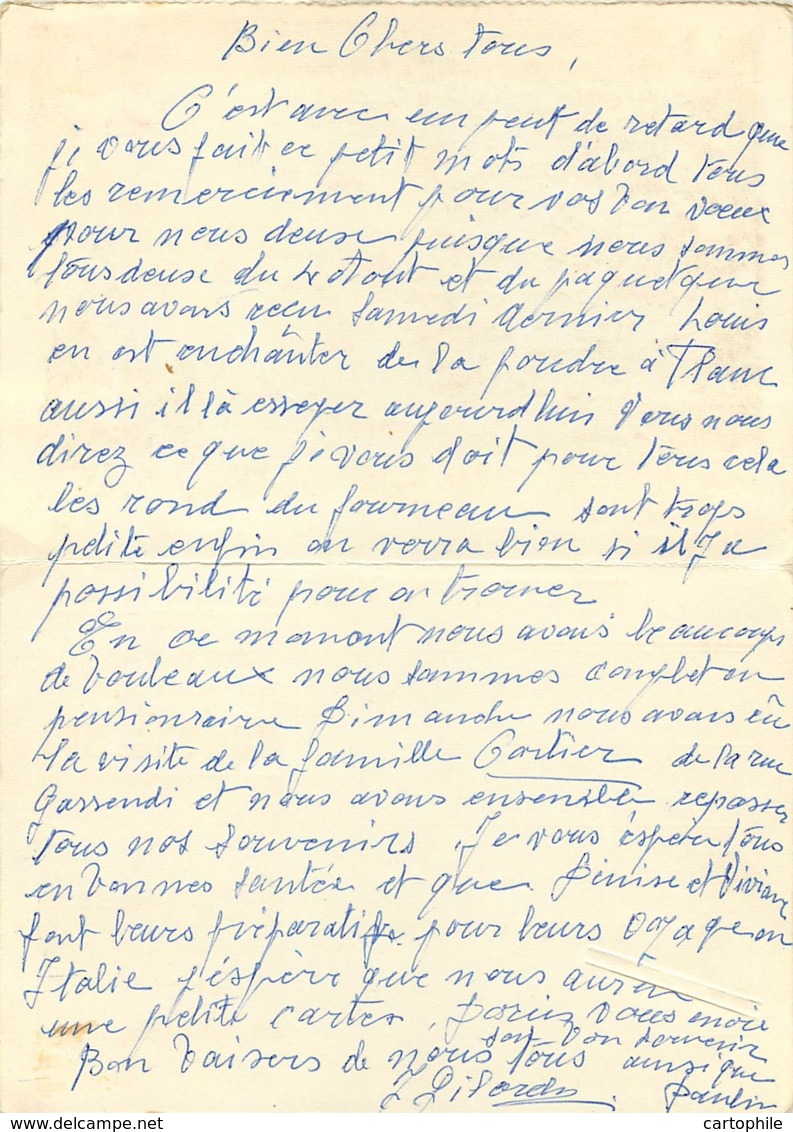 Bien Chers tous,
C'est avec un peut de retard que
je vous fait ce petit mots d'abord tous
les remerciement pour vos bon voeux
pour nous deuse puisque nous sommes
tous deuse du et du paquet que
nous avons recu Samedi dernier Louis
en est enchanter de la poudre à
aussi il là esseyer aujourdhui Vous nous
direz ce que je vous doit pour tous cela
les rond du fourneau sont trops
petite enfin on verra bien si il y a
possibilité pour en trouver
En ce momont nous avons beaucoups
de bouleaux nous sommes complet en
pensionnaire Dimanche nous avons eû
la visite de la famille Cartier de la rue
Gassendi et nous avons ensemble repasser
tous nos souvenirs. Je vous éspère tous
en bonnes santée et que Denise et Viviane
font leurs préparatifs pour leurs voyage en
Italie j'éspère que nous auron
une petite cartes. vous envoie
son bon souvenir
Bon baisers de nous tous ainsi que
Paulin